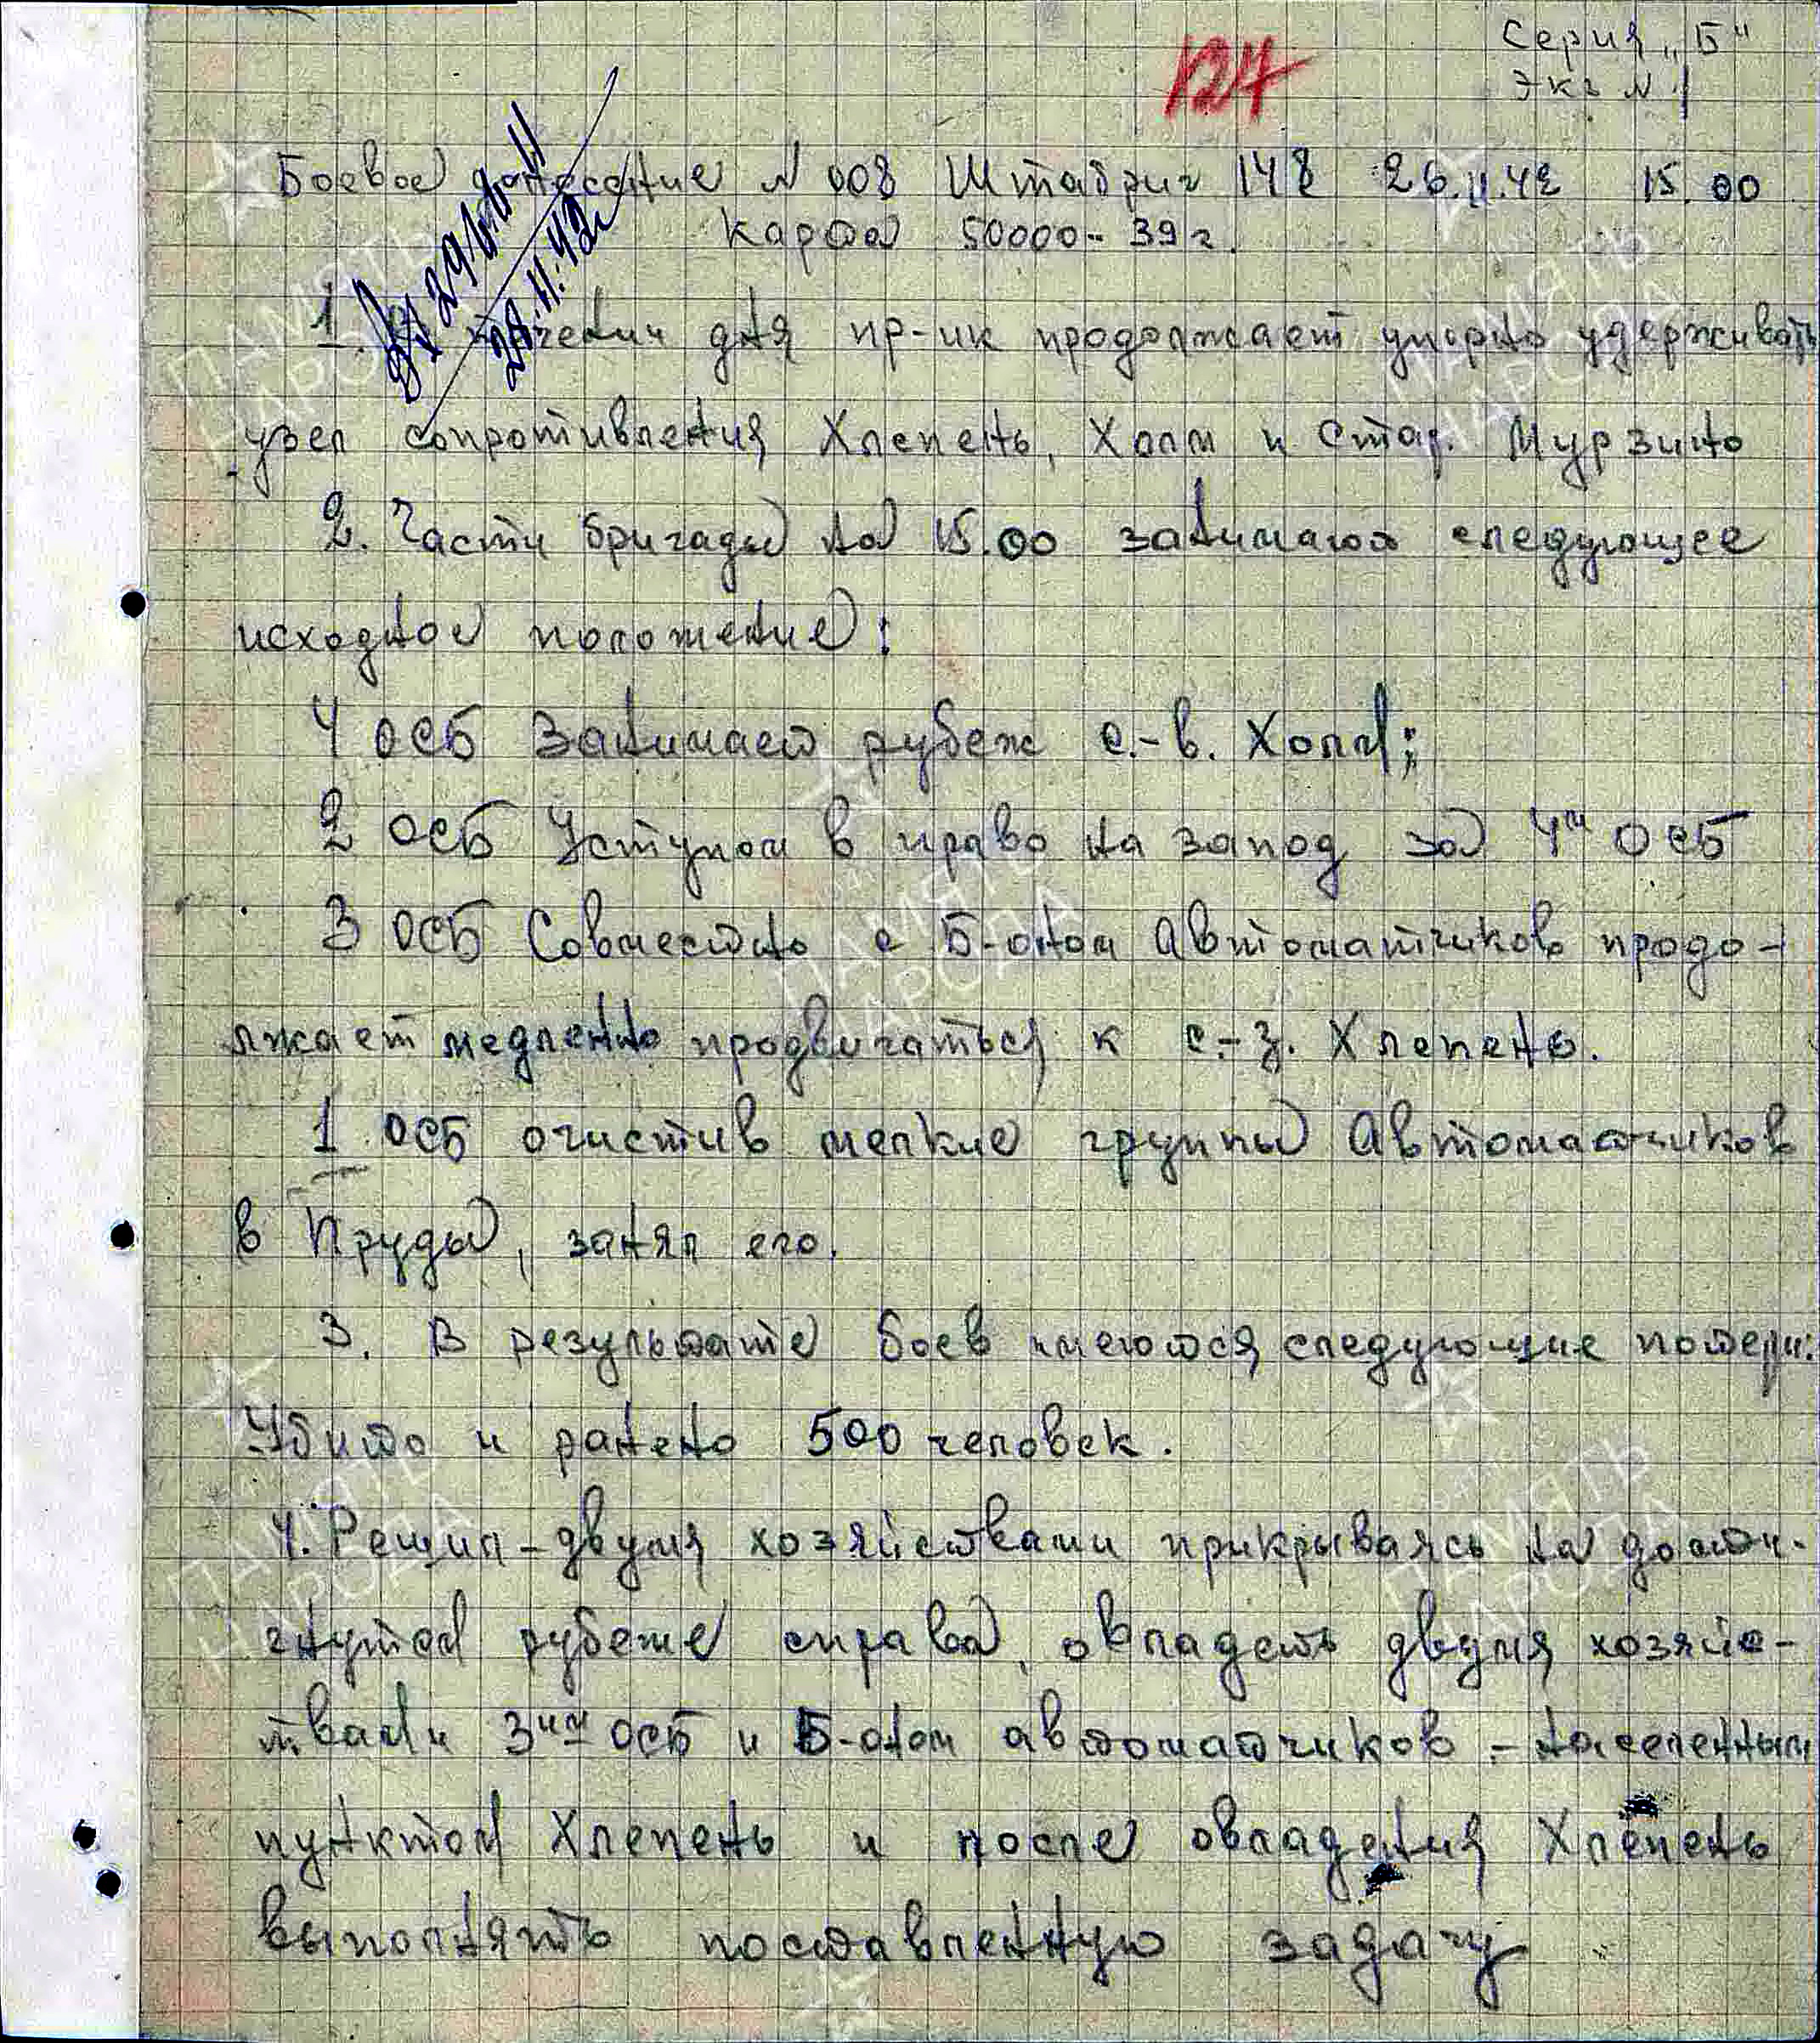 Серия „Б"
Экз N 1
124
Боевое донесение N 008 Штабриг 148 26.11.42 15.00
Карта 50000-39г.
28.11.42
1. В течении дня пр-ик продолжает упорно удерживать
узел сопротивления Хлепень, Холм и Стар. Мурзино
2. Части бригады на 15.00 занимают следующее
исходное положение:
4 ОСБ Занимает рубеж с.-в. Холм;
2 ОСБ Уступом в право на запод за 4м ОСБ
3 ОСБ Совместно с Б-оном Автоматчиков продо-
лжает медленно продвигаться к с.-з. Хлепень.
1 ОСБ очистив мелкие группы Автоматчиков
в Пруды, занял его.
3. В результате боев имеются следующие потери.
Убито и ранено 500 человек.
4. Решил - двумя хозяйствами прикрываясь на дости-
гнутом рубеже справа, овладеть двумя хозяйс-
твами 3им ОСБ и Б-оном автоматчиков - населенным
пунктом Хлепень и после овладения Хлепень
выполнять поставленную задачу
ПАМЯТЬ
НАРОДА